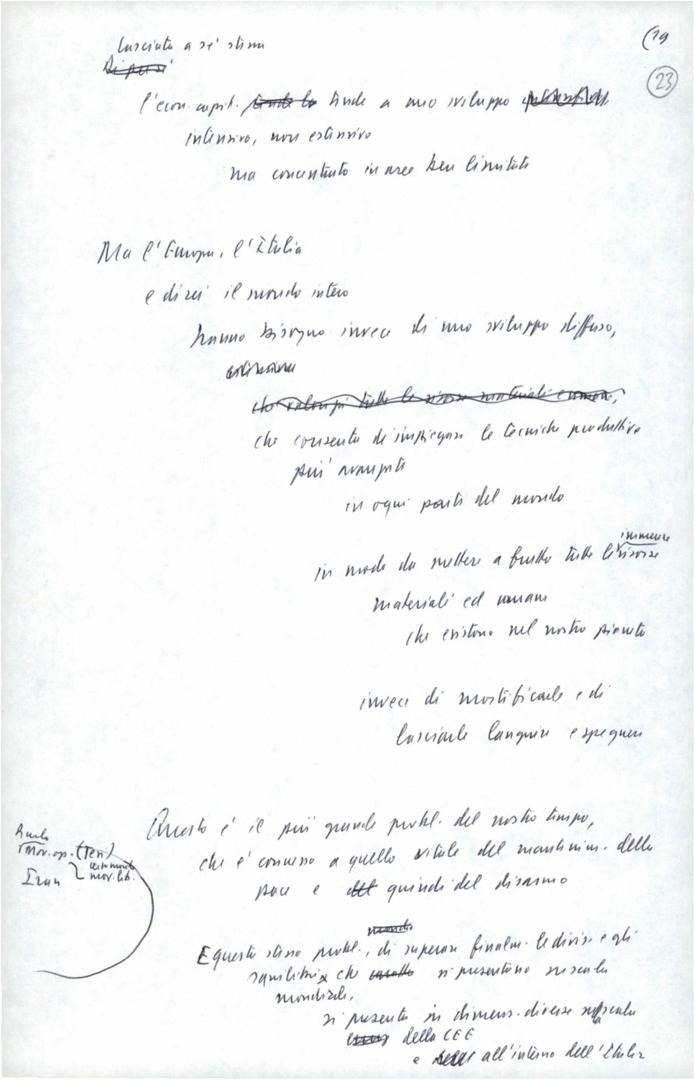 (19
23
Lasciata a sé stessa
l'econ. capit. tende a uno sviluppo
intensivo, non estensivo
ma concentrato in aree ben limitate
Ma l'Europa, l'Italia
e direi il mondo intero
hanno bisogno invece di uno sviluppo diffuso,
estensivo
che valorizzi tutte le risorse materiali e umane,
che consenta di impiegare le tecniche produttive
più avanzate
in ogni parte del mondo
immense
in modo da mettere a frutto tutte le risorse
materiali ed umane
che esistono nel nostro pianeta
invece di mortificarle e di
lasciarle languire e spegnere
Questo è il più grande probl. del nostro tempo,
che è connesso a quello vitale del mantenim. della
pace e quindi del disarmo
Ruolo
Mov. op. (Ieri)
mov. lib.
Iran
E questo stesso probl., di superare finalm. le divis. e gli
squilibri che si presentano su scala
mondiale,
si presenta in dimens. diverse su scala
della CEE
e all'interno dell'Italia